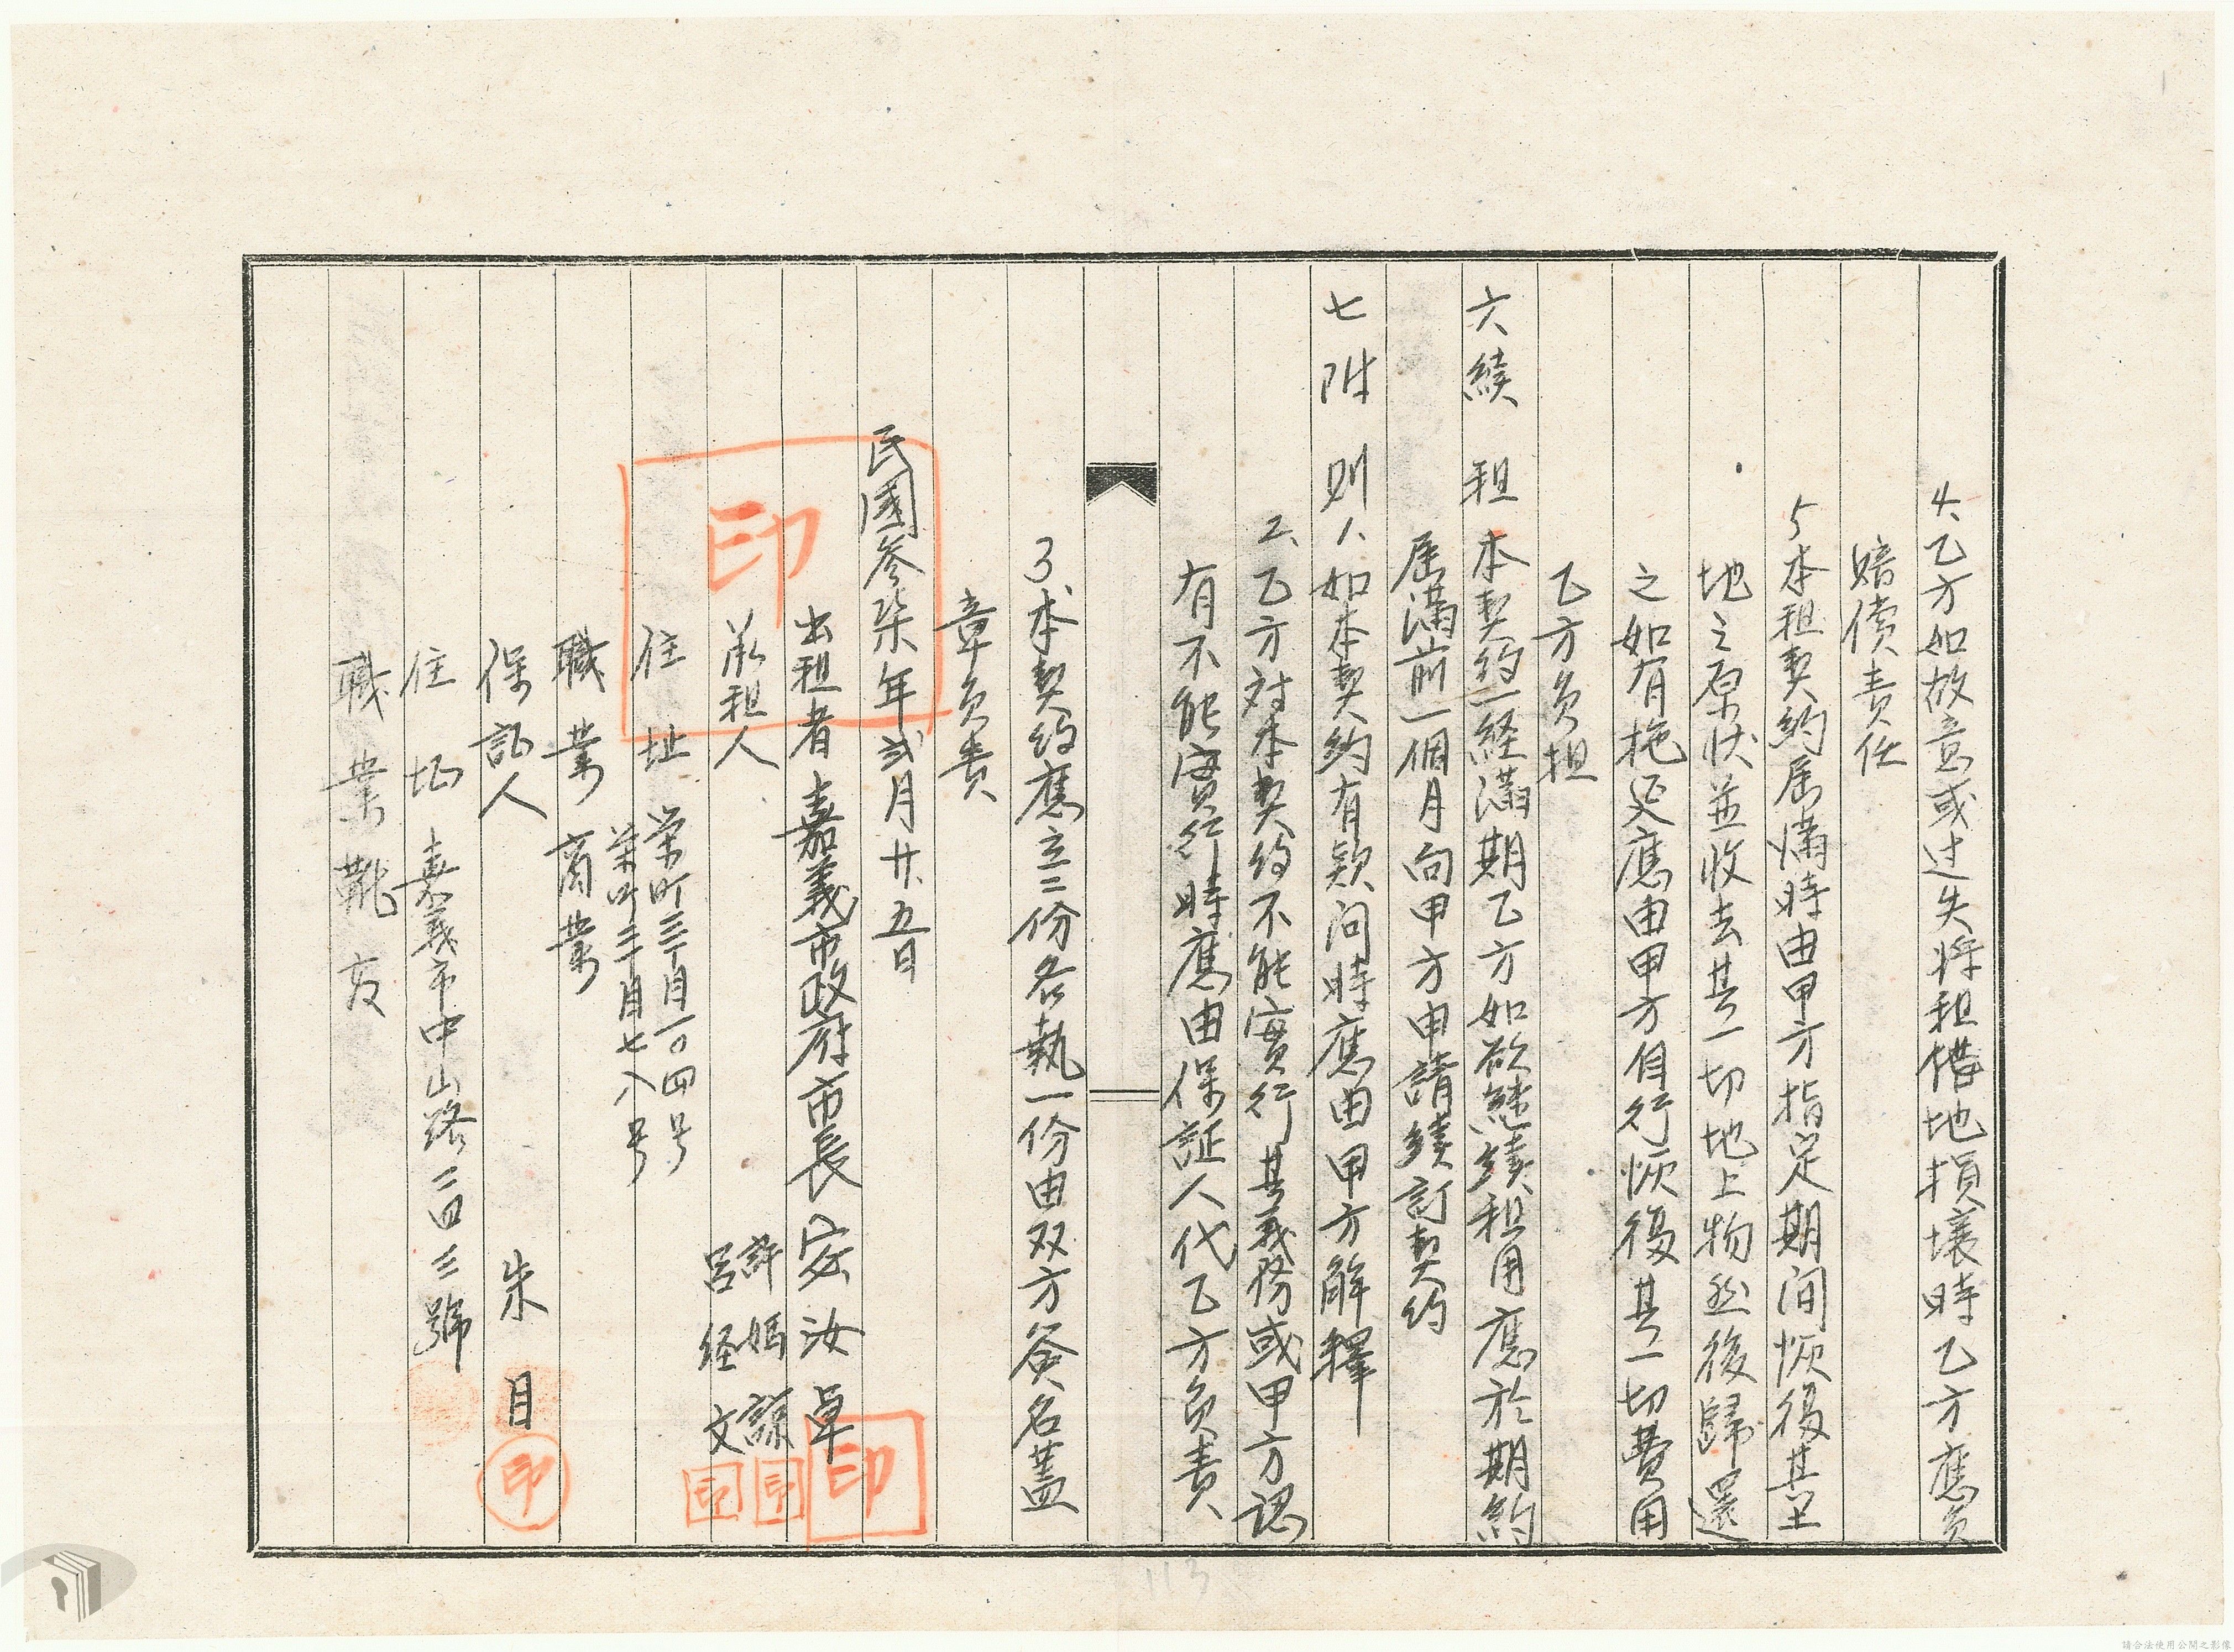 4、乙方如故意或过失将租借地損壞時乙方應負
賠償責任
5本租契約届滿時由甲方指定期间恢復其土
地之原状並收去其一切地上物然後歸還
之如有拖延應由甲方自行恢復其一切費用
乙方负担
六續租本契约一経滿期乙方如欲継续租用應於期約
届滿前一個月向甲方申請續訂契约
七附则1、如本契约有欵问時應由甲方解釋
2、乙方対本契约不能實行其義務或甲方認
有不能實行時應由保証人代乙方负責
3、本契约應立三份各執一份由双方簽名蓋
章负責
民國参柒年弍月廿五日
出租者嘉義市政府市長宓汝卓
承租人許媽諒
呂経文
住址栄町三丁目一〇四号
栄町三丁目七八号
職業商業
保証人朱目
住址嘉義市中山路二四三號
職業靴
印
印
印
印
印
113
請合法使用公開之影像